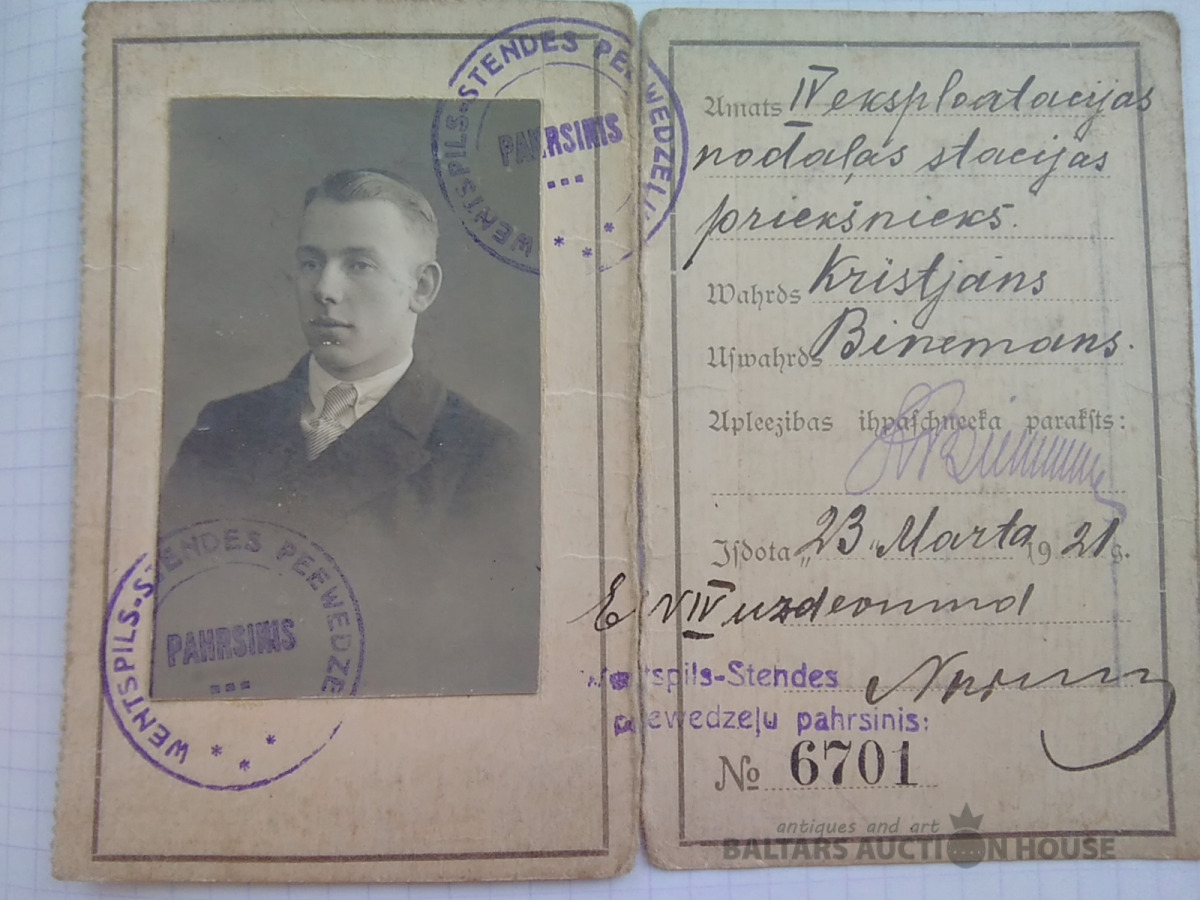 WENTSPILS-STENDES PEEWEDZEĻU
PAHRSINIS
WENTSPILS-STENDES PEEWEDZE
PAHRSINIS
Amats IV eksploatacijas
nodaļas stacijas
priekšnieks.
Wahrds Kristjāns
Uſwahrds Binemans.
Apleezibas ihpaſchneeka parakſts:
Iſdota „23 " Marta 1921 g.
E N IV uzdevumā
Wentspils-Stendes
peewedzeļu pahrsinis:
№ 6701
antiques and art
BALTARS AUCTION HOUSE